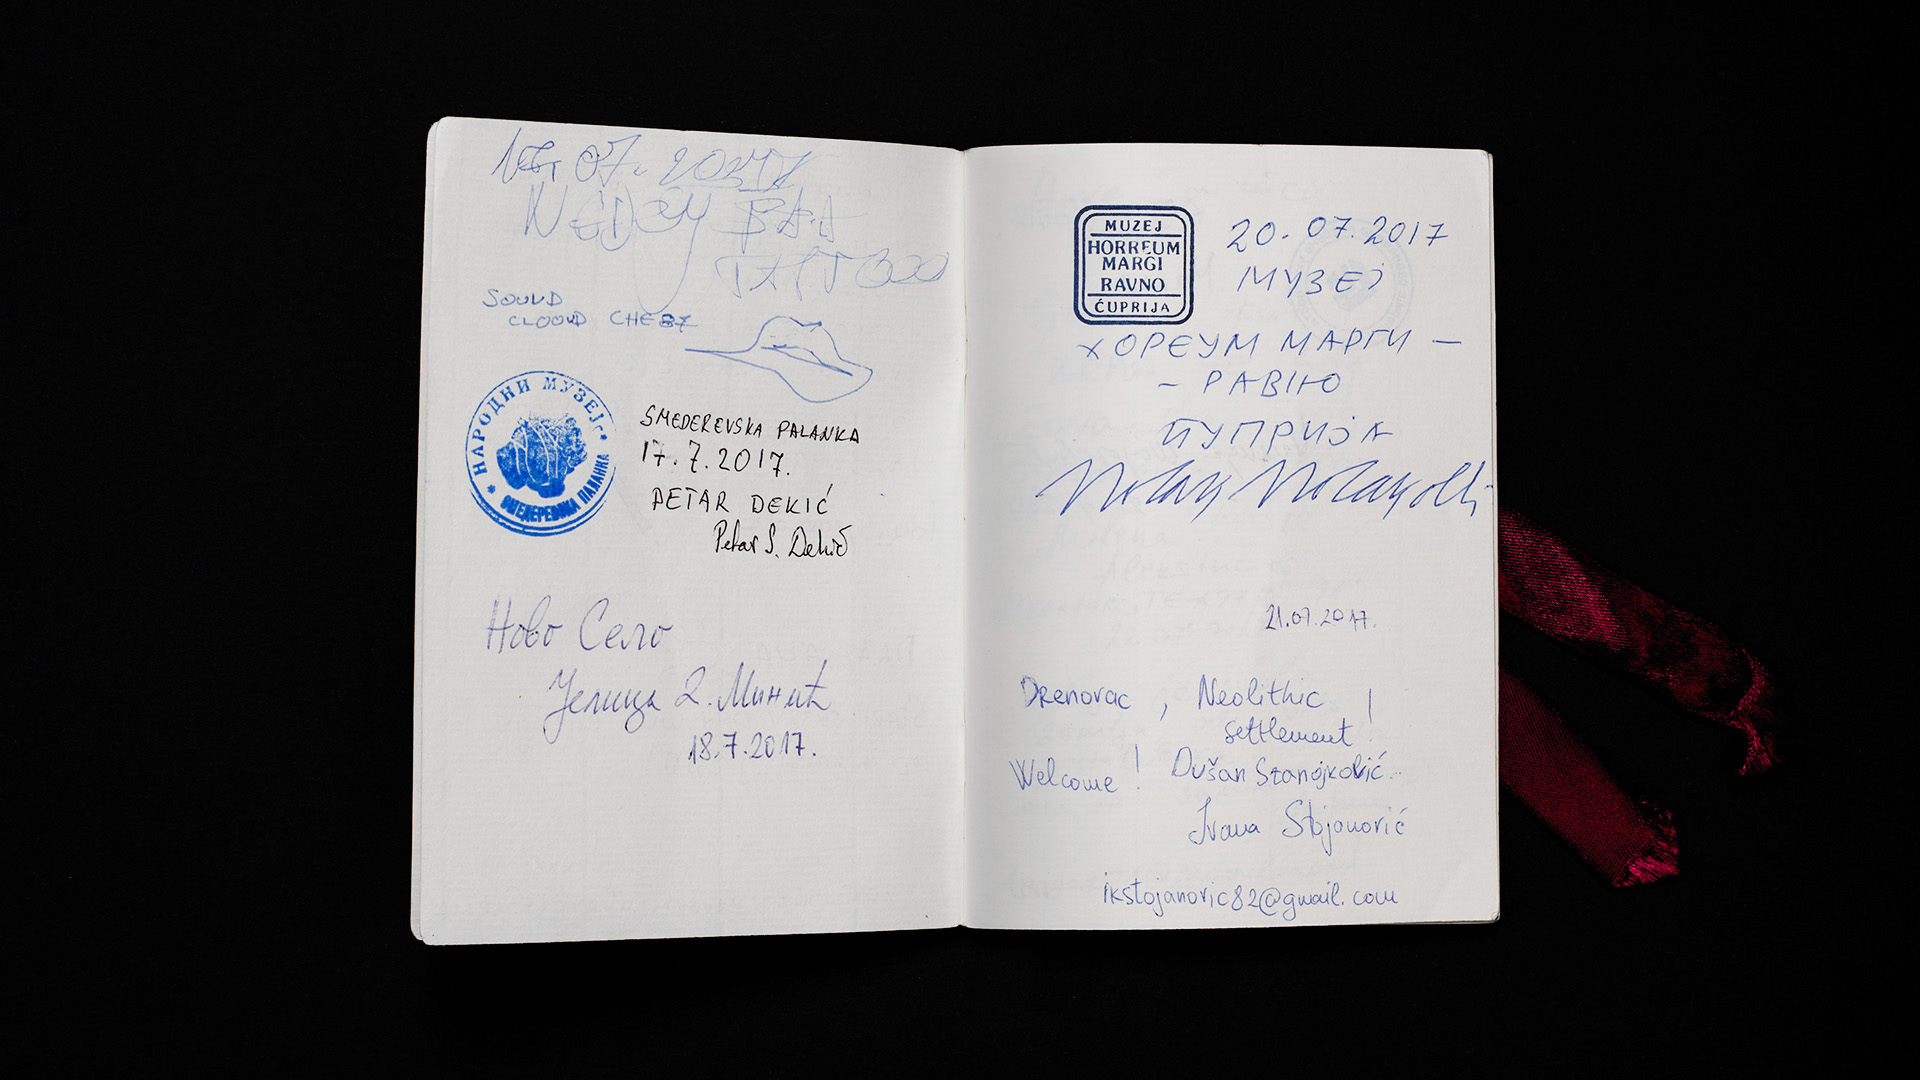 07. 2017
SOUND
CLOOUD
НАРОДНИ МУЗЕЈ
СМЕДЕРЕВСКА ПАЛАНКА
SMEDEREVSKA PALANKA
17.7.2017.
PETAR DEKIĆ
Petar S. Dekić
Ново Село
Јелица Д. Минић
18.7.2017.
MUZEJ
HORREUM
MARGI
RAVNO
ĆUPRIJA
20.07.2017
МУЗЕЈ
ХОРЕУМ МАРГИ –
– РАВНО
ЋУПРИЈА
21.07.2017.
Drenovac, Neolithic
settlement!
Welcome! Dušan Stanojković
Ivana Stojanović
ikstojanovic82@gmail.com